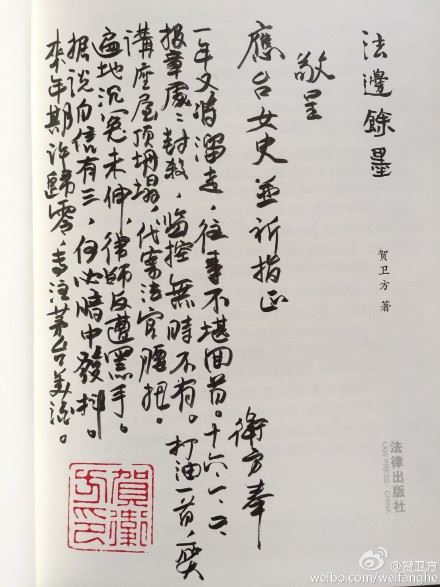 法邊餘墨
贺卫方 著
法律出版社
LAW PRESS·CHINA
敬呈
應台女史並祈指正
衛方奉
一年又将溜走，往事不堪回首。
报章處〻封殺，监控無時不有。
打油一首，一笑
講座屋顶坍塌，代寫法官腰扭。
遍地沉冤未伸，律師反遭黑手。
据说自信有三，何必暗中發抖。
来年期许歸零，专注茅台美酒。
賀衛方印
@贺卫方
weibo.com/weifanghe